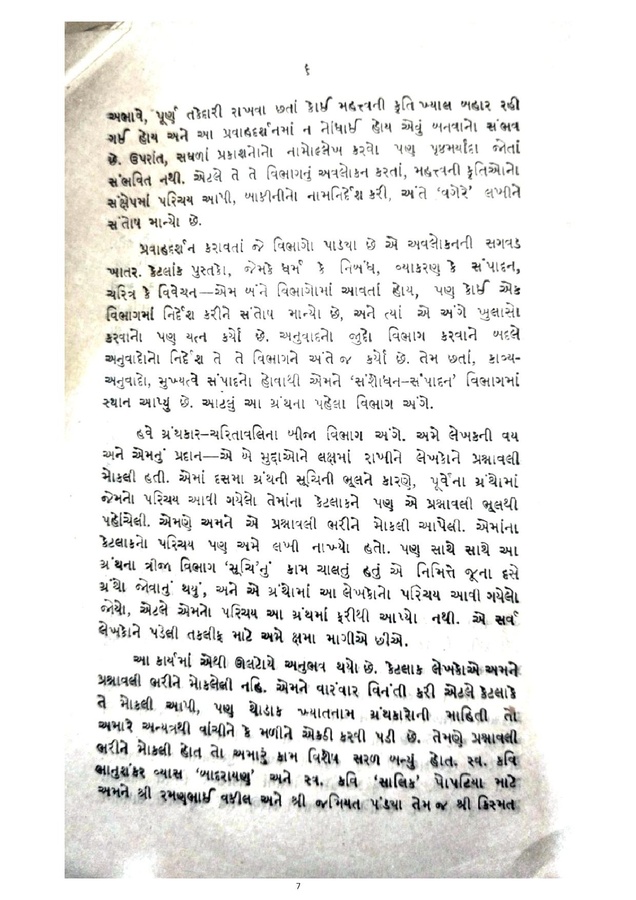 ૬
અભાવે, પૂર્ણ તકેદારી રાખવા છતાં કોઈ મહત્ત્વની કૃતિ ખ્યાલ બહાર રહી
ગઈ હોય અને આ પ્રવાહદર્શનમાં ન નોંધાઈ હોય એવું બનવાનો સંભવ
છે. ઉપરાંત, સઘળાં પ્રકાશનોનો નામોલ્લેખ કરવો પણ પૃષ્ઠમર્યાદા જોતાં
સંભવિત નથી. એટલે તે તે વિભાગનું અવલોકન કરતાં, મહત્ત્વની કૃતિઓનો
સંક્ષેપમાં પરિચય આપી, બાકીનીનો નામનિર્દેશ કરી, અંતે ‘વગેરે’ લખીને
સંતોષ માન્યો છે.
પ્રવાહદર્શન કરાવતાં જે વિભાગો પાડ્યા છે એ અવલોકનની સગવડ
ખાતર. કેટલાંક પુસ્તકો, જેમકે ધર્મ કે નિબંધ, વ્યાકરણ કે સંપાદન,
ચરિત્ર કે વિવેચન—એમ બંને વિભાગોમાં આવતાં હોય, પણ કોઈ એક
વિભાગમાં નિર્દેશ કરીને સંતોષ માન્યો છે, અને ત્યાં એ અંગે ખુલાસો
કરવાનો પણ યત્ન કર્યો છે. અનુવાદનો જુદો વિભાગ કરવાને બદલે
અનુવાદોનો નિર્દેશ તે તે વિભાગને અંતે જ કર્યો છે. તેમ છતાં, કાવ્ય-
અનુવાદો, મુખ્યત્વે સંપાદનો હોવાથી એમને ‘સંશોધન–સંપાદન’ વિભાગમાં
સ્થાન આપ્યું છે. આટલું આ ગ્રંથના પહેલા વિભાગ અંગે.
હવે ગ્રંથકાર–ચરિતાવલિના બીજા વિભાગ અંગે. અમે લેખકની વય
અને એમનું પ્રદાન—એ બે મુદ્દાઓને લક્ષમાં રાખીને લેખકોને પ્રશ્નાવલી
મોકલી હતી. એમાં દસમા ગ્રંથની સૂચિની ભૂલને કારણે, પૂર્વેના ગ્રંથોમાં
જેમનો પરિચય આવી ગયેલો તેમાંના કેટલાકને પણ એ પ્રશ્નાવલી ભૂલથી
પહોંચેલી. એમણે અમને એ પ્રશ્નાવલી ભરીને મોકલી આપેલી. એમાંના
કેટલાકનો પરિચય પણ અમે લખી નાખ્યો હતો. પણ સાથે સાથે આ
ગ્રંથના ત્રીજા વિભાગ ‘સૂચિ’નું કામ ચાલતું હતું એ નિમિત્તે જૂના દસે
ગ્રંથો જોવાનું થયું, અને એ ગ્રંથોમાં આ લેખકોનો પરિચય આવી ગયેલો
જોયો, એટલે એમનો પરિચય આ ગ્રંથમાં ફરીથી આપ્યો નથી. એ સર્વ
લેખકોને પડેલી તકલીફ માટે અમે ક્ષમા માગીએ છીએ.
આ કાર્યમાં એથી ઊલટોયે અનુભવ થયો છે. કેટલાક લેખકોએ અમને
પ્રશ્નાવલી ભરીને મોકલેલી નહિ. એમને વારંવાર વિનંતી કરી એટલે કેટલાકે
તે મોકલી આપી, પણ થોડાક ખ્યાતનામ ગ્રંથકારોની માહિતી તો
અમારે અન્યત્રથી વાંચીને કે મળીને એકઠી કરવી પડી છે. તેમણે પ્રશ્નાવલી
ભરીને મોકલી હોત તો અમારું કામ વિશેષ સરળ બન્યું હોત. સ્વ. કવિ
ભાનુશંકર વ્યાસ ‘બાદરાયણ’ અને સ્વ. કવિ ‘સાલિક’ પોપટિયા માટે
અમને શ્રી રમણભાઈ વકીલ અને શ્રી જમિયત પંડ્યા તેમ જ શ્રી કિસ્મત
7